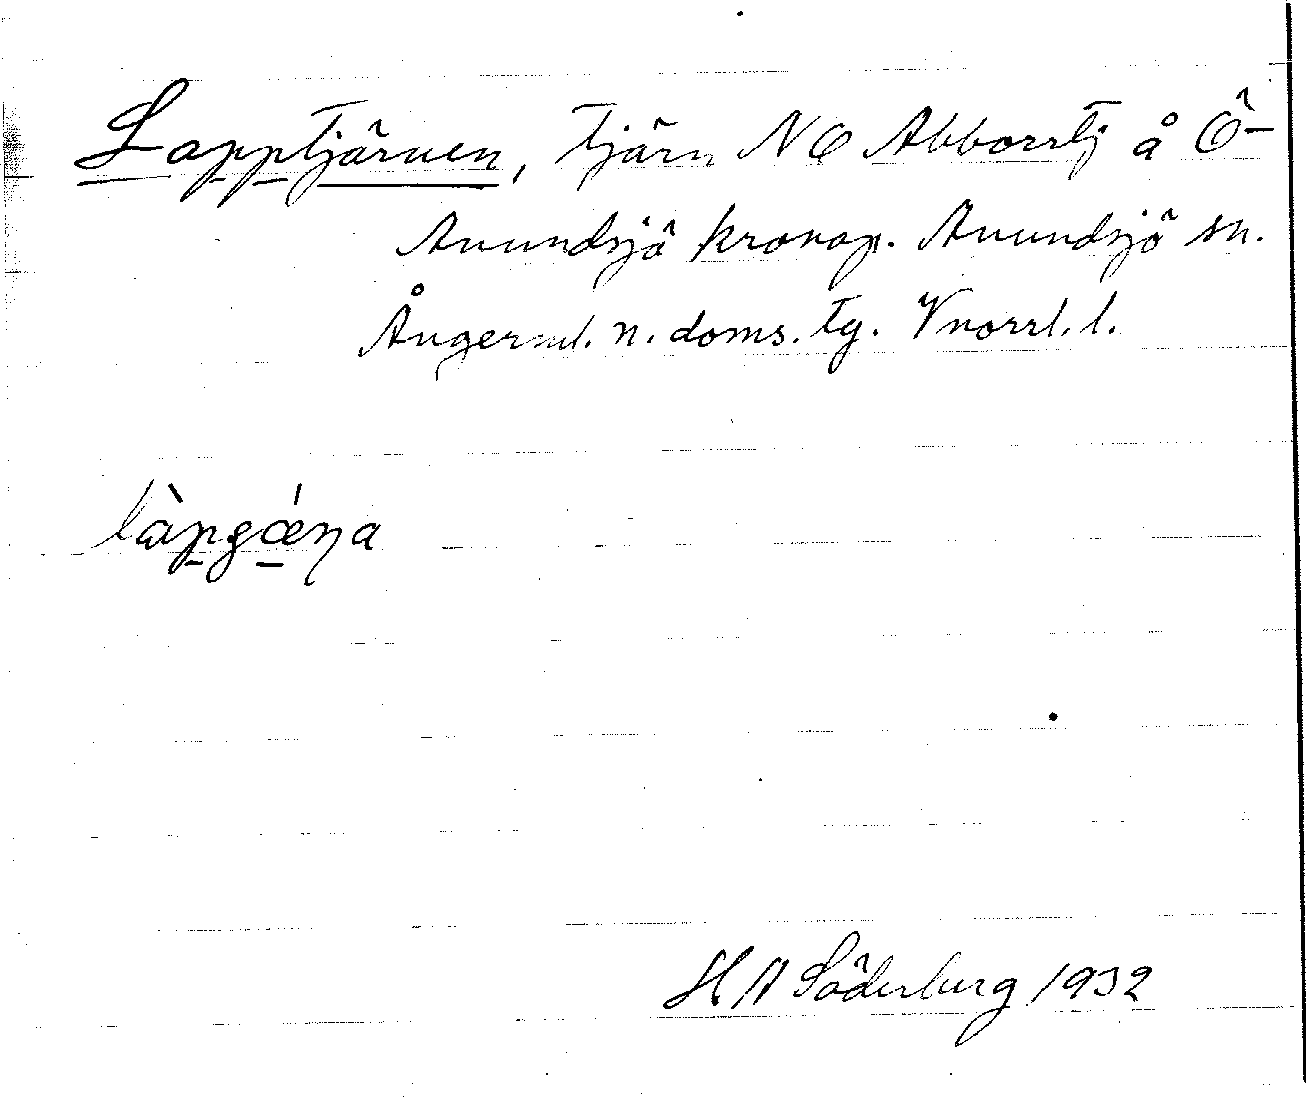 Lapptjärnen, tjärn NO Abborrtj å Ö-
Anundsjö kronop. Anundsjö sn.
Ångerml. n. doms. tg. Vnorrl. l.
làpʒǽŋa
H A Söderberg 1932